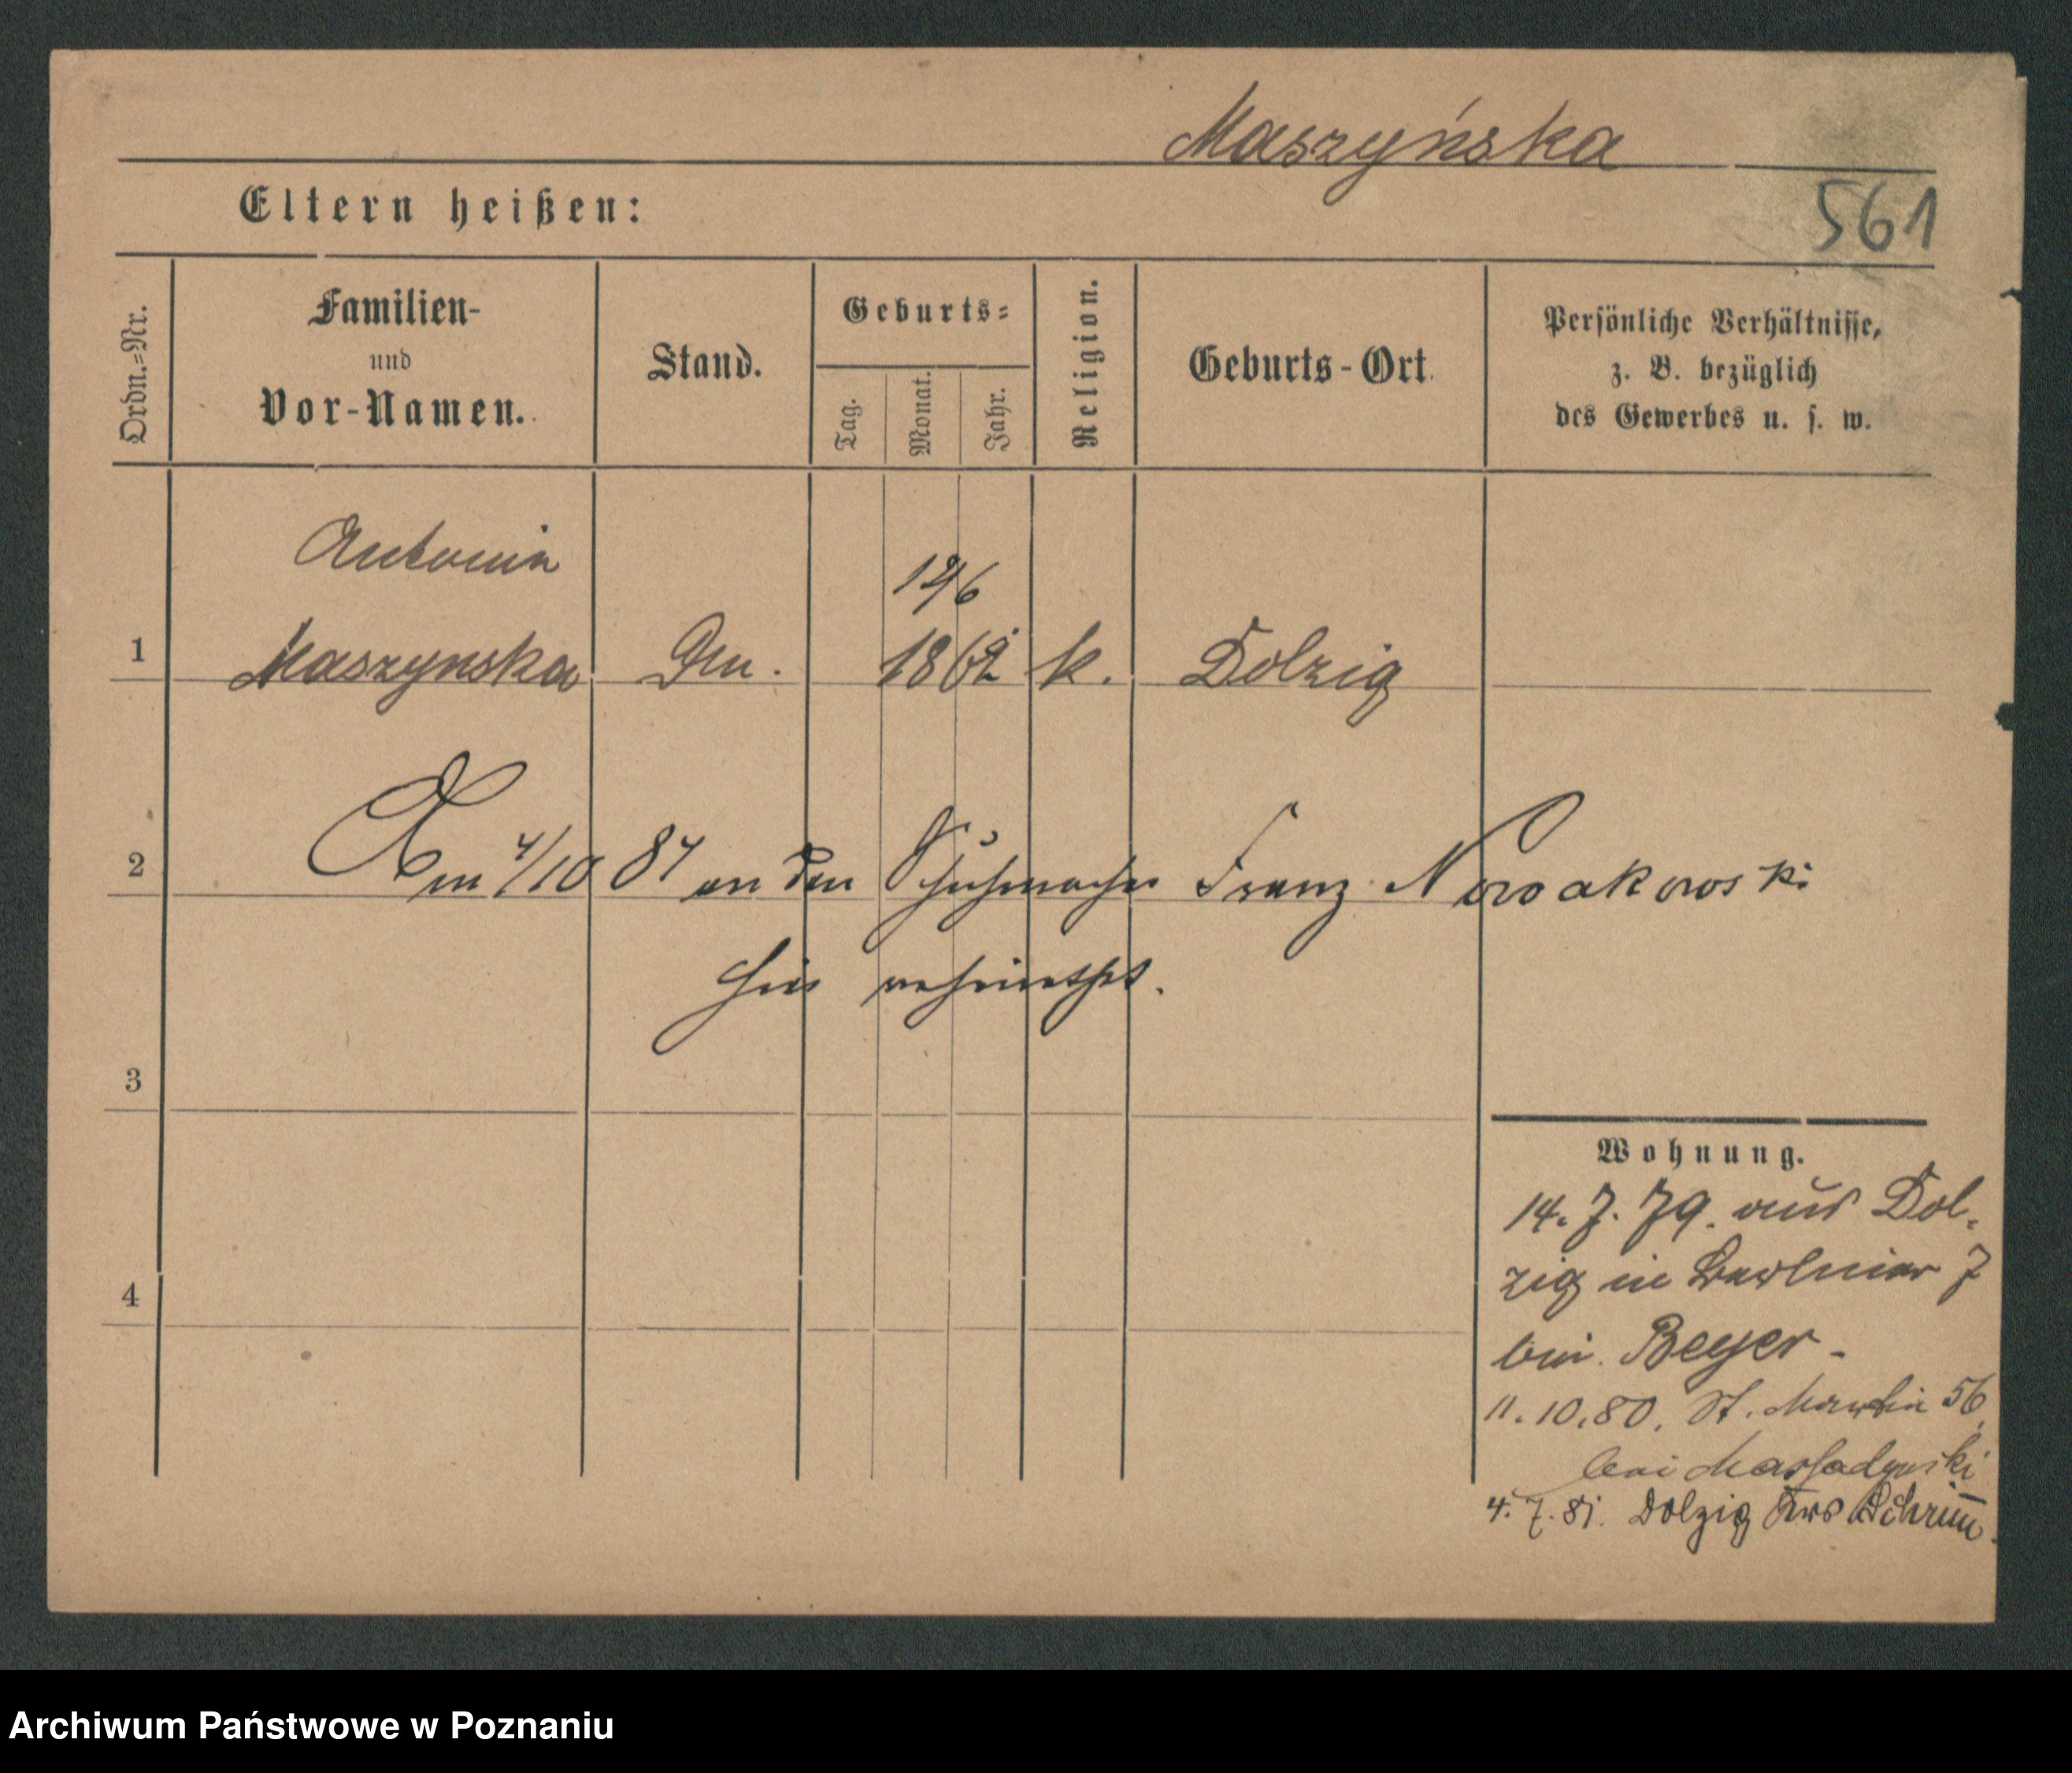 Maszyńska
561
Eltern heißen:
Ordn.-Nr.
Familien-
und
Vor-Namen.
Stand.
Geburts-
Tag.
Monat.
Jahr.
Religion.
Geburts-Ort
Persönliche Verhältnisse,
z. B. bezüglich
des Gewerbes u. s. w.
Antonin
1 Maszynska 1862 k. Dolzig
2 Am 4/10 87 an den Schuhmacher Franz Nowakowski
hier verheirathet.
3
Wohnung.
14. 7. 79. aus Dol-
zig in 7
4
bei Beyer -
11. 10. 80. St. Martin 56
bei
4. 7. 81. Dolzig Krs Schrim̅
Archiwum Państwowe w Poznaniu